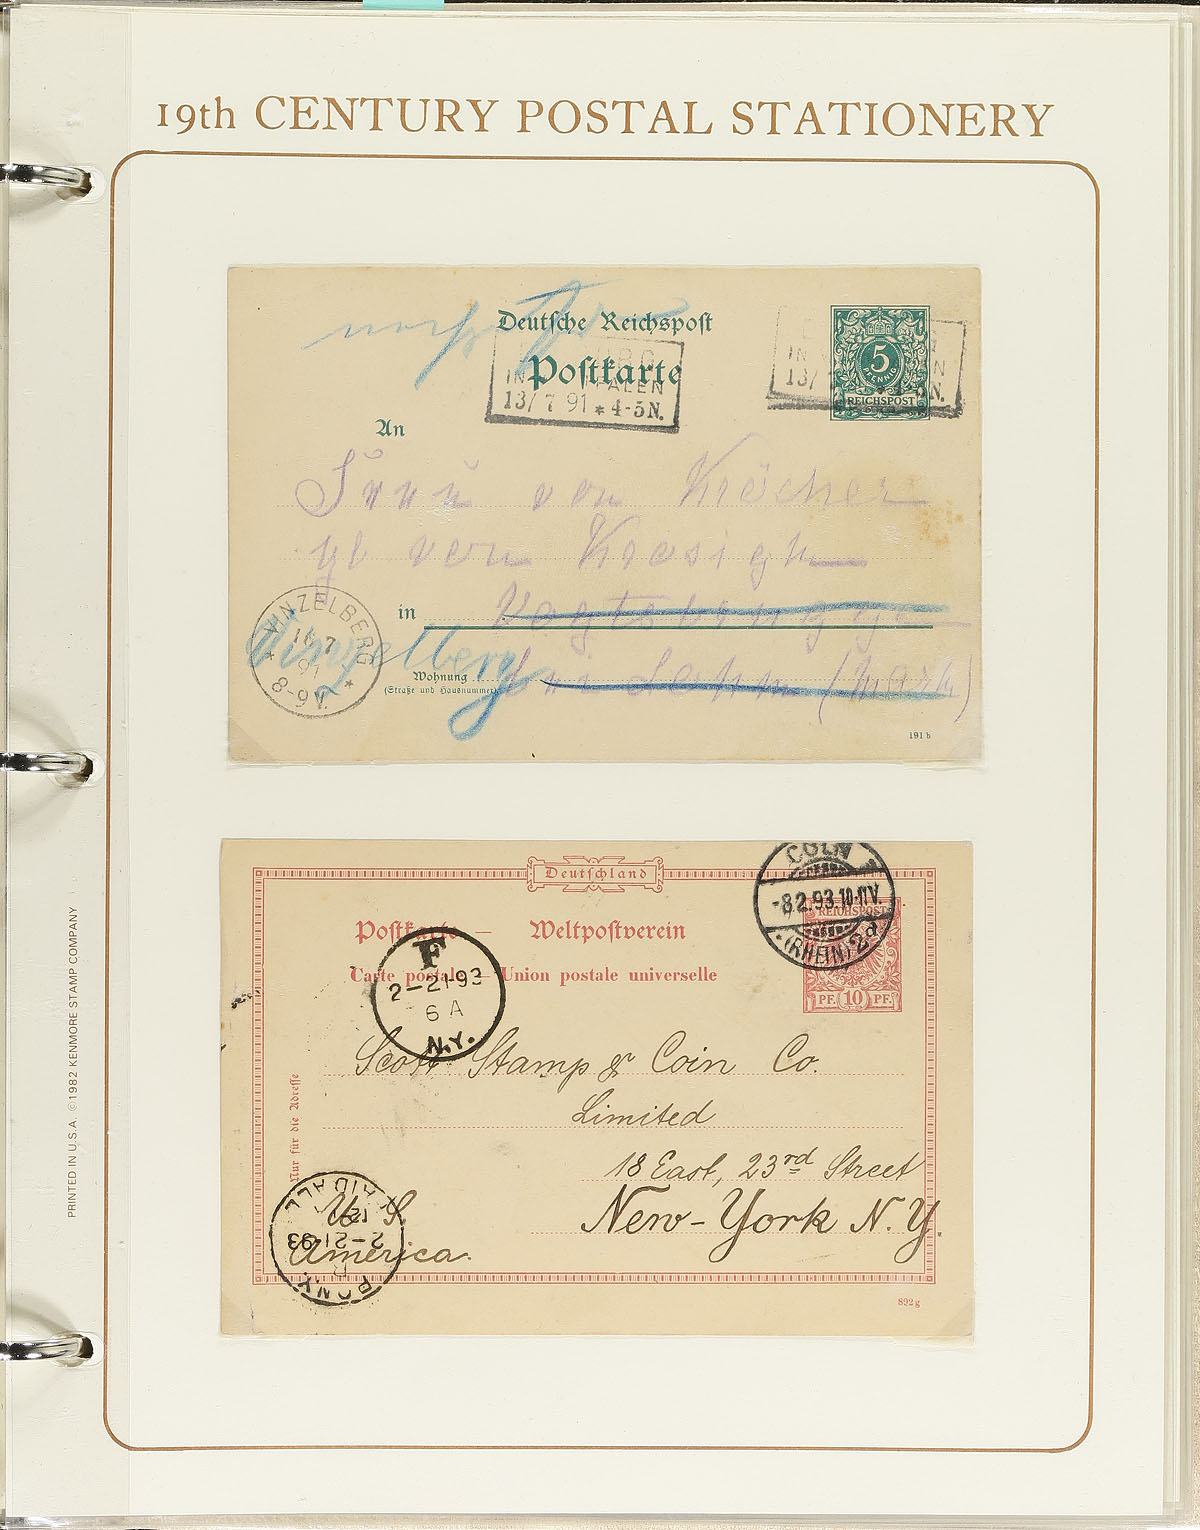 19th CENTURY POSTAL STATIONERY
Deutsche Reichspost
Postkarte
5
PFENNIG
REICHSPOST
IN WESTFALEN
13/7 91 * 4-5N.
An
von Kröcher
von Krosigk
in
Vinzelberg
Wohnung
(Straße und Hausnummer)
(Mark)
VINZELBERG
7
91
8-9V.
191 b
Deutschland
Postkarte — Weltpostverein
Carte postale — Union postale universelle
CÖLN
-8.2.93.10-11V.
(RHEIN) 2d
REICHSPOST
PF. 10 PF.
F
2-21-93
6 A
N.Y.
Scott Stamp & Coin Co.
Limited
18 East, 23rd Street
New-York N.Y.
U. S.
America.
Nur für die Adresse
PAID ALL
2-21-93
892 g
PRINTED IN U.S.A. ©1982 KENMORE STAMP COMPANY